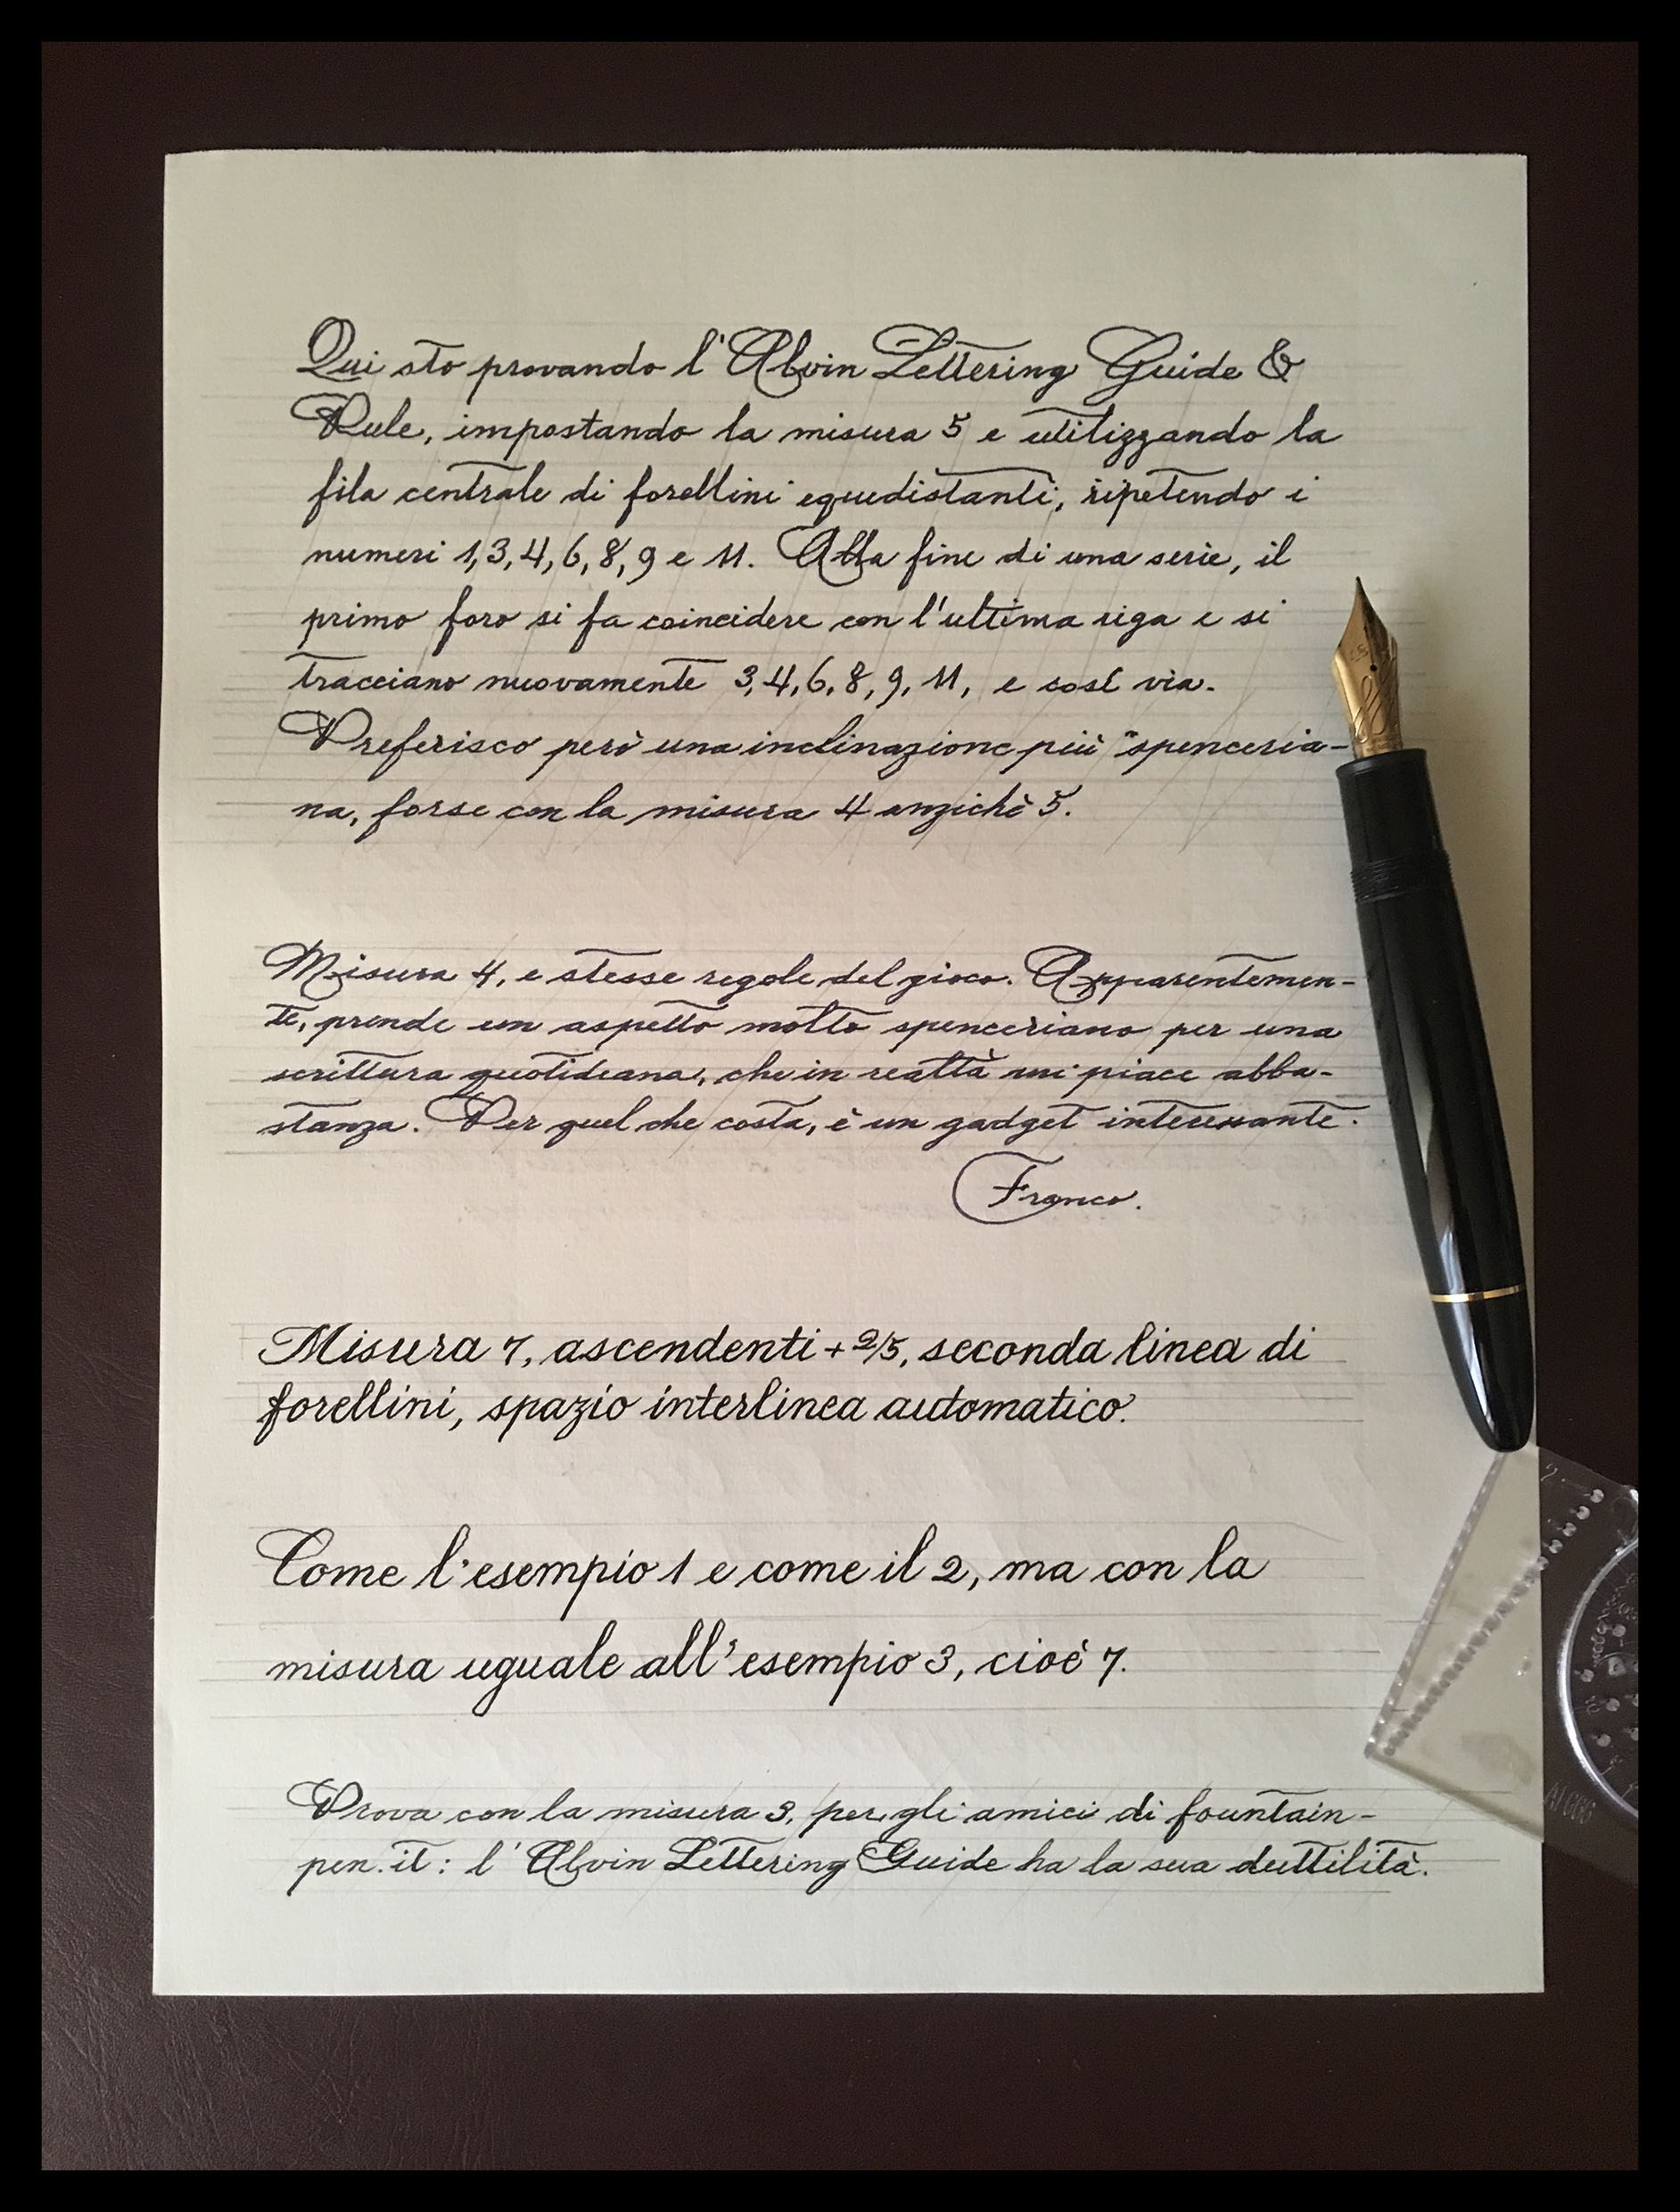 Qui sto provando l'Alvin Lettering Guide &
Rule, impostando la misura 5 e utilizzando la
fila centrale di forellini equidistanti, ripetendo i
numeri 1,3,4,6,8,9 e 11. Alla fine di una serie, il
primo foro si fa coincidere con l'ultima riga e si
tracciano nuovamente 3,4,6,8,9,11, e così via.
Preferisco però una inclinazione più "spenceria-
na, forse con la misura 4 anzichè 5.
Misura 4, e stesse regole del gioco. Apparentemen-
te, prende un aspetto molto spenceriano per una
scrittura quotidiana, che in realtà mi piace abba-
stanza. Per quel che costa, è un gadget interessante.
Franco.
Misura 7, ascendenti + 2/5, seconda linea di
forellini, spazio interlinea automatico.
Come l'esempio 1 e come il 2, ma con la
misura uguale all'esempio 3, cioè 7.
Prova con la misura 3, per gli amici di fountain-
pen.it: l'Alvin Lettering Guide ha la sua duttilità.